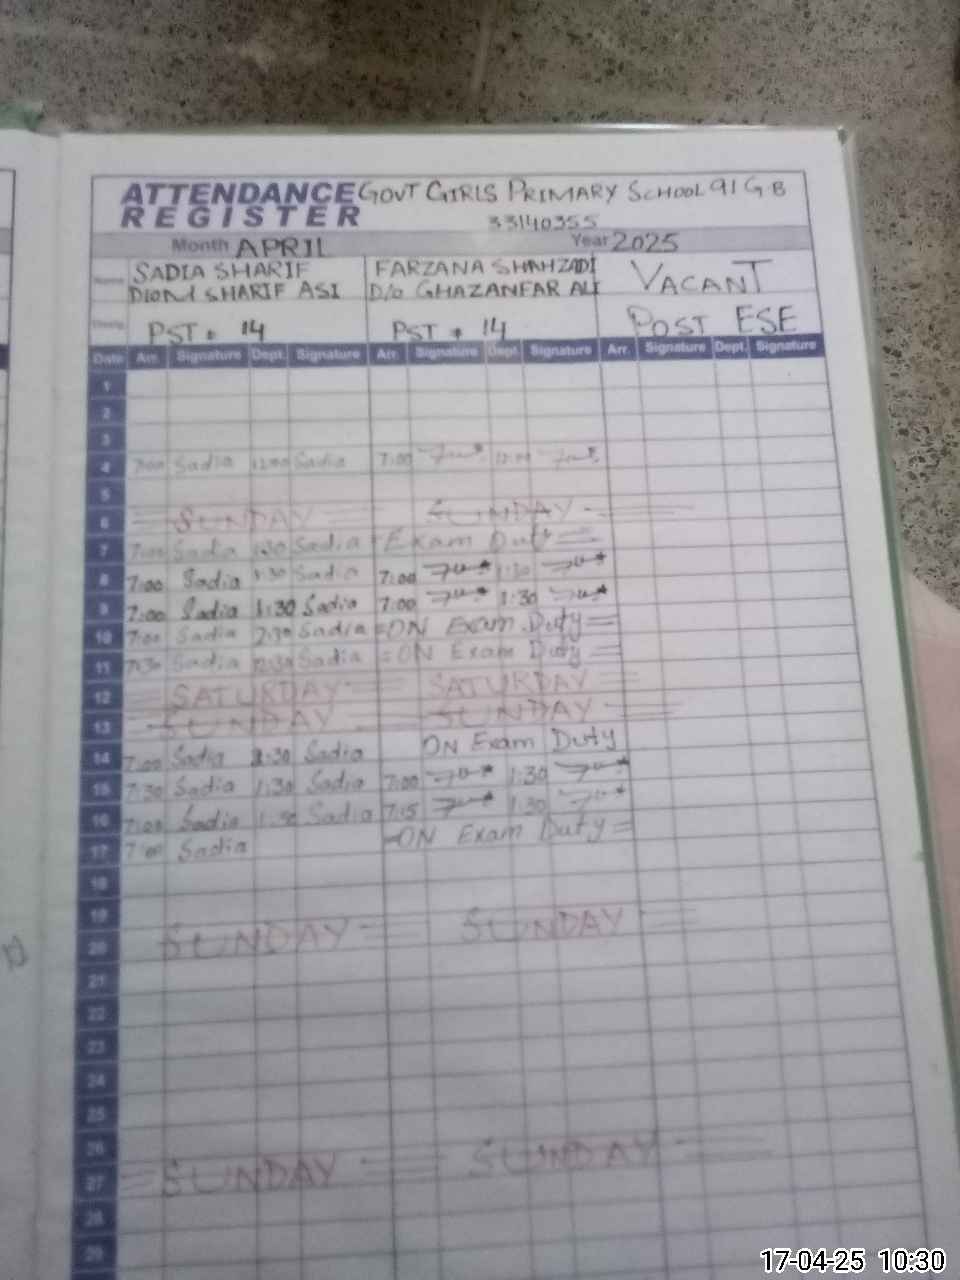 ATTENDANCE GOVT GIRLS PRIMARY SCHOOL 91 G.B
REGISTER 33140355
Month APRIL Year 2025
Name SADIA SHARIF FARZANA SHAHZADI VACANT
SHARIF D/O GHAZANFAR ALI
PST 14 PST 14 POST ESE
Date Arr. Signature Dept. Signature Arr. Signature Dept. Signature Arr. Signature Dept. Signature
1
2
3
4 7:00 Sadia 12:00 Sadia 7:00
5
6 SUNDAY SUNDAY
7 7:00 Sadia 1:30 Sadia Exam Duty
8 7:00 Sadia 1:30 Sadia 7:00 1:30
9 7:00 Sadia 1:30 Sadia 7:00 1:30
10 7:00 Sadia Sadia =ON Exam Duty=
11 7:30 Sadia 12:30 Sadia =ON Exam Duty=
12 SATURDAY SATURDAY
13 SUNDAY SUNDAY
14 7:00 Sadia Sadia ON Exam Duty
15 7:30 Sadia 1:30 Sadia 7:00 1:30
16 7:00 Sadia 1:30 Sadia 7:15 1:30
17 7:00 Sadia =ON Exam Duty=
18
19
20 SUNDAY SUNDAY
21
22
23
24
25
26
27 SUNDAY SUNDAY
28
29
17-04-25 10:30